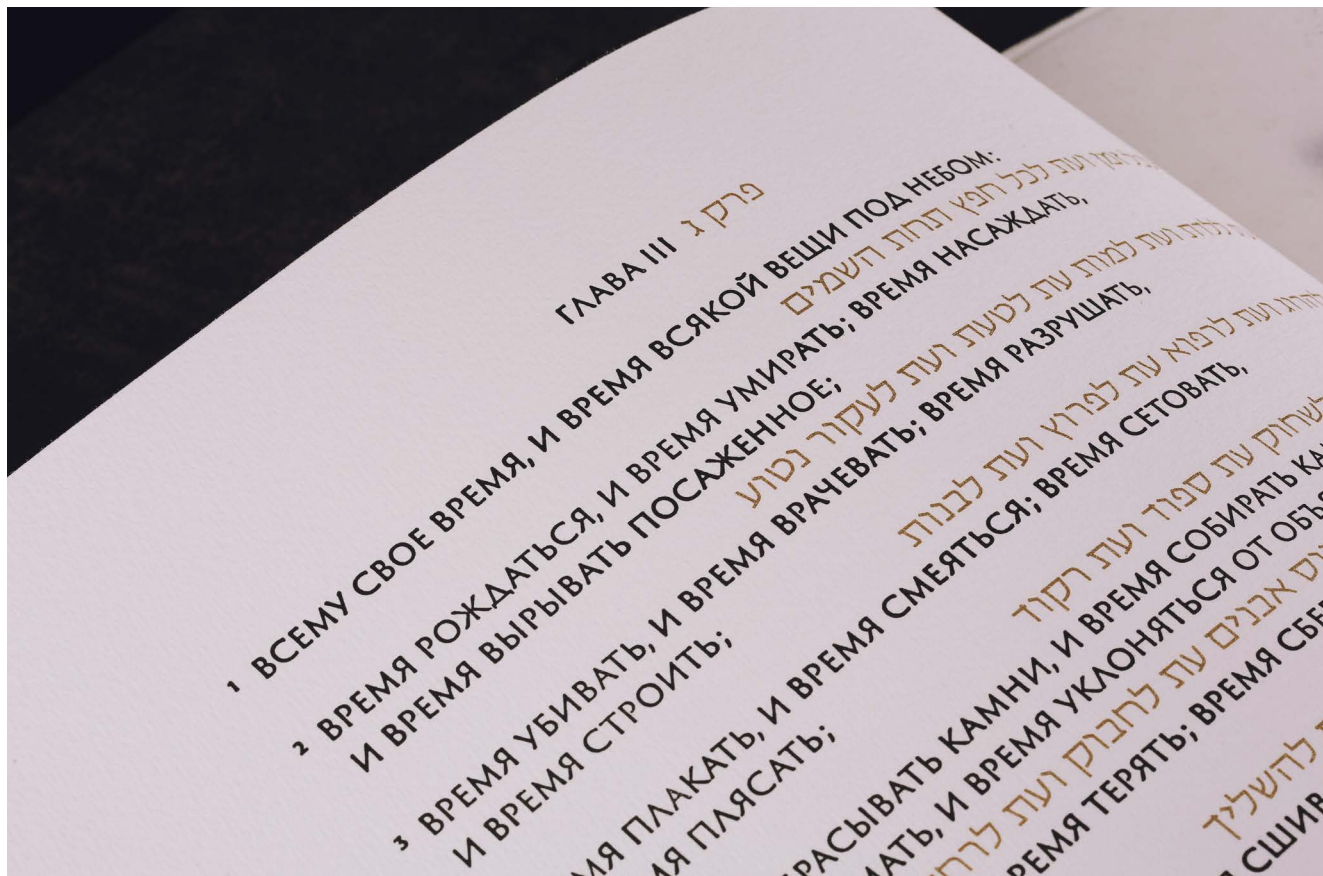 ГЛАВА III פרק ג
1 ВСЕМУ СВОЕ ВРЕМЯ, И ВРЕМЯ ВСЯКОЙ ВЕЩИ ПОД НЕБОМ:
ועת לכל חפץ תחת השמים
2 ВРЕМЯ РОЖДАТЬСЯ, И ВРЕМЯ УМИРАТЬ; ВРЕМЯ НАСАЖДАТЬ,
И ВРЕМЯ ВЫРЫВАТЬ ПОСАЖЕННОЕ;
ועת למות עת לטעת ועת לעקור נטוע
3 ВРЕМЯ УБИВАТЬ, И ВРЕМЯ ВРАЧЕВАТЬ; ВРЕМЯ РАЗРУШАТЬ,
И ВРЕМЯ СТРОИТЬ;
ועת לרפוא עת לפרוץ ועת לבנות
ПЛАКАТЬ, И ВРЕМЯ СМЕЯТЬСЯ; ВРЕМЯ СЕТОВАТЬ,
ПЛЯСАТЬ;
לשחוק עת ספוד ועת רקוד
КАМНИ, И ВРЕМЯ СОБИРАТЬ
И ВРЕМЯ УКЛОНЯТЬСЯ ОТ
אבנים עת לחבוק ועת
ТЕРЯТЬ; ВРЕМЯ
להשליך